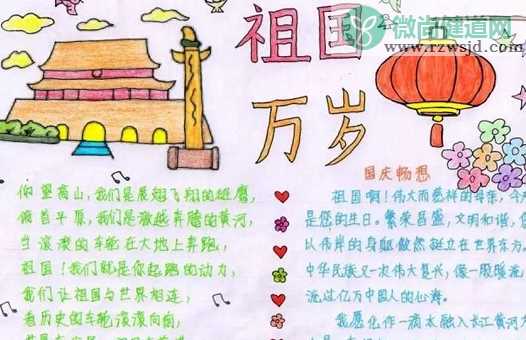 祖国
万岁
微尚健道网
www.rzwsjd.com
仰望高山,我们是展翅飞翔的雄鹰,
俯首平原,我们是激越奔腾的黄河,
当滚滚的车轮在大地上奔跑,
祖国!我们就是你起跑的动力,
我们让祖国与世界相连,
看历史的车轮滚滚向前,
国庆畅想
祖国啊!伟大而慈祥的母亲,今
是您的生日。繁荣昌盛,文明和谐,您
以伟岸的身躯傲然挺立在世界东方。
中华民族又一次伟大复兴,像一股暖流
流过亿万中国人的心海。
我愿化作一滴水融入长江黄河